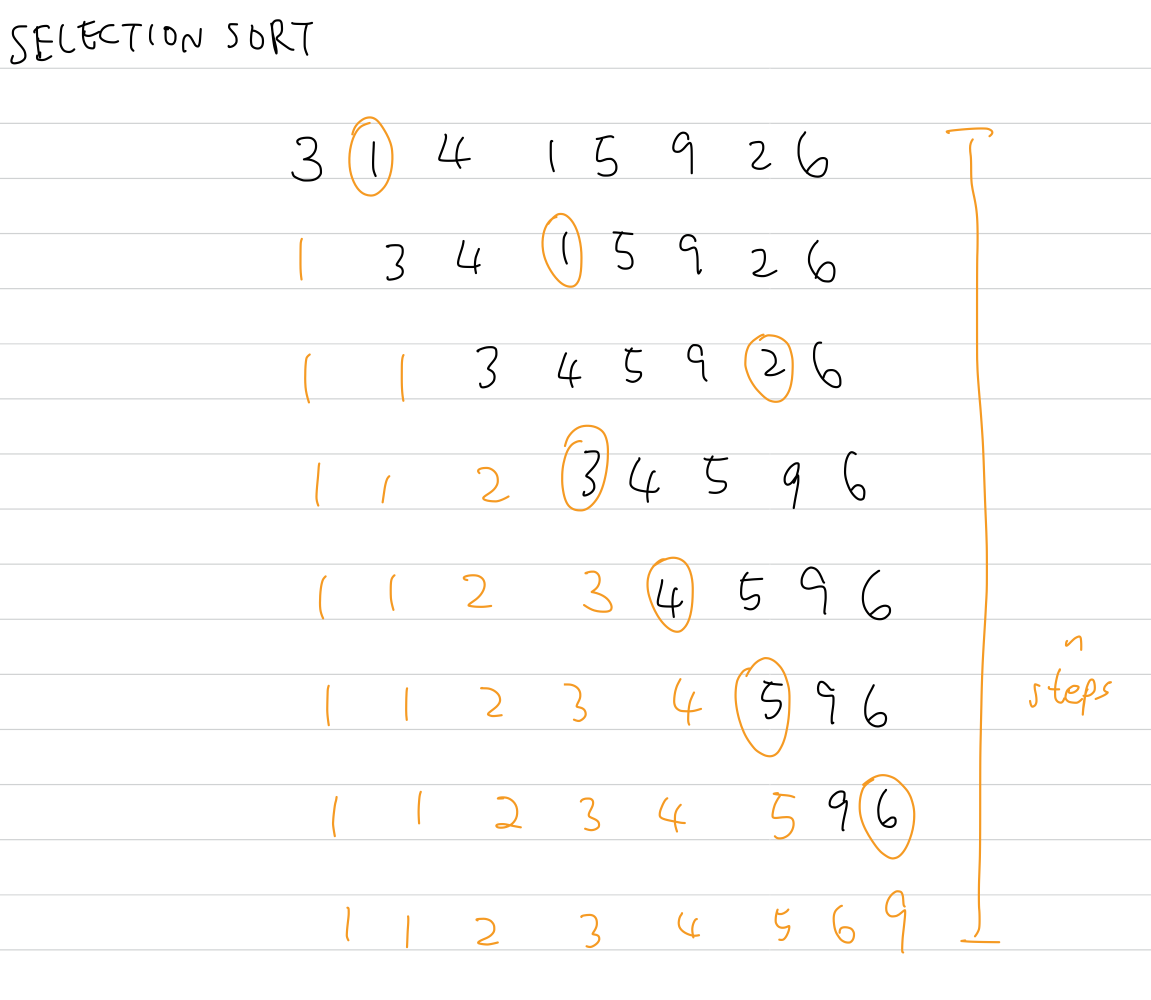 SELECTION SORT
3 1 4 1 5 9 2 6
1 3 4 1 5 9 2 6
1 1 3 4 5 9 2 6
1 1 2 3 4 5 9 6
1 1 2 3 4 5 9 6
n
steps
1 1 2 3 4 5 9 6
1 1 2 3 4 5 9 6
1 1 2 3 4 5 6 9